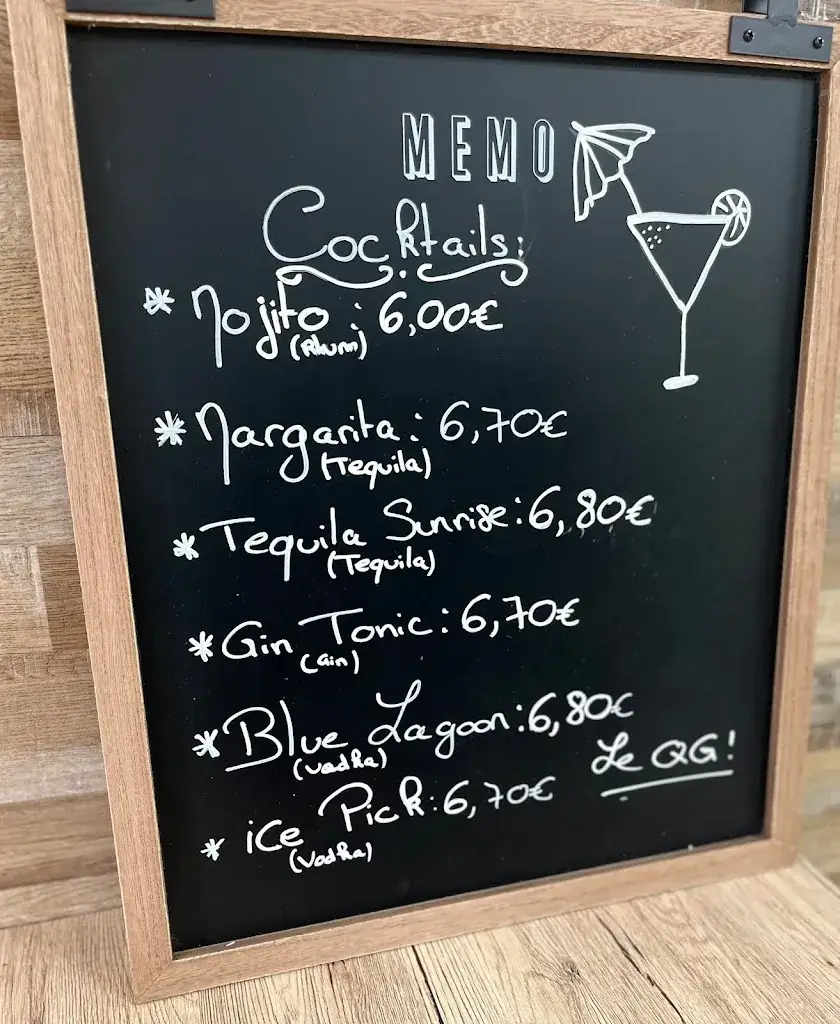 MEMO
Cocktails:
* Mojito : 6,00€
(Rhum)
* Margarita : 6,70€
(Tequila)
* Tequila Sunrise : 6,80€
(Tequila)
* Gin Tonic : 6,70€
(Gin)
* Blue Lagoon : 6,80€
(Vodka)
Le QG!
* ice Pick : 6,70€
(Vodka)